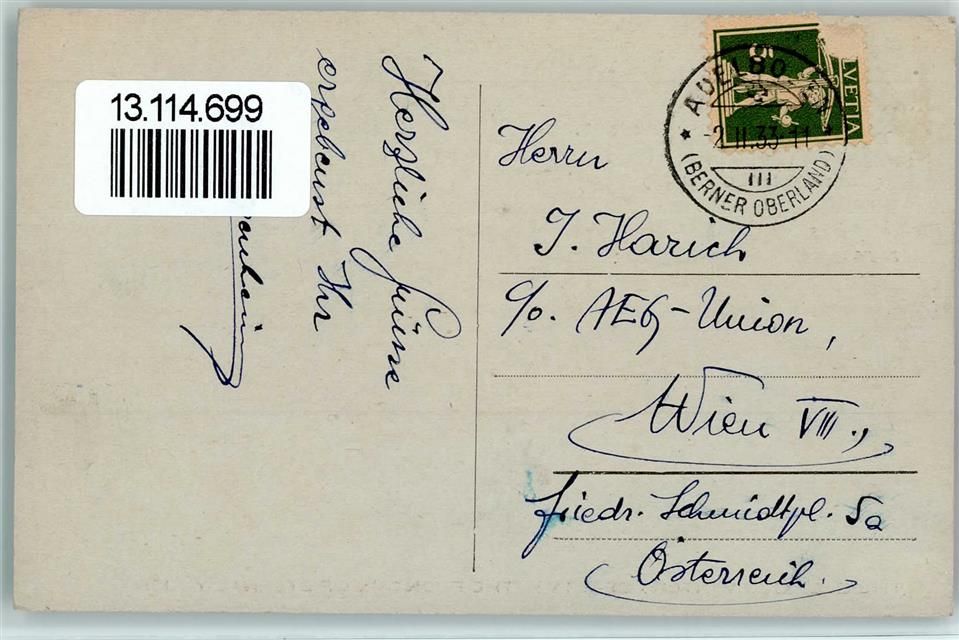 13.114.699
Herzliche Grüsse
ergebenst Ihr
ADELBO
-2.II.33-11
(BERNER OBERLAND)
5
HELVETIA
Herrn
J. Harich
c/o. AEG-Union,
Wien VIII.,
Friedr. Schmidtpl. 5a
Österreich.